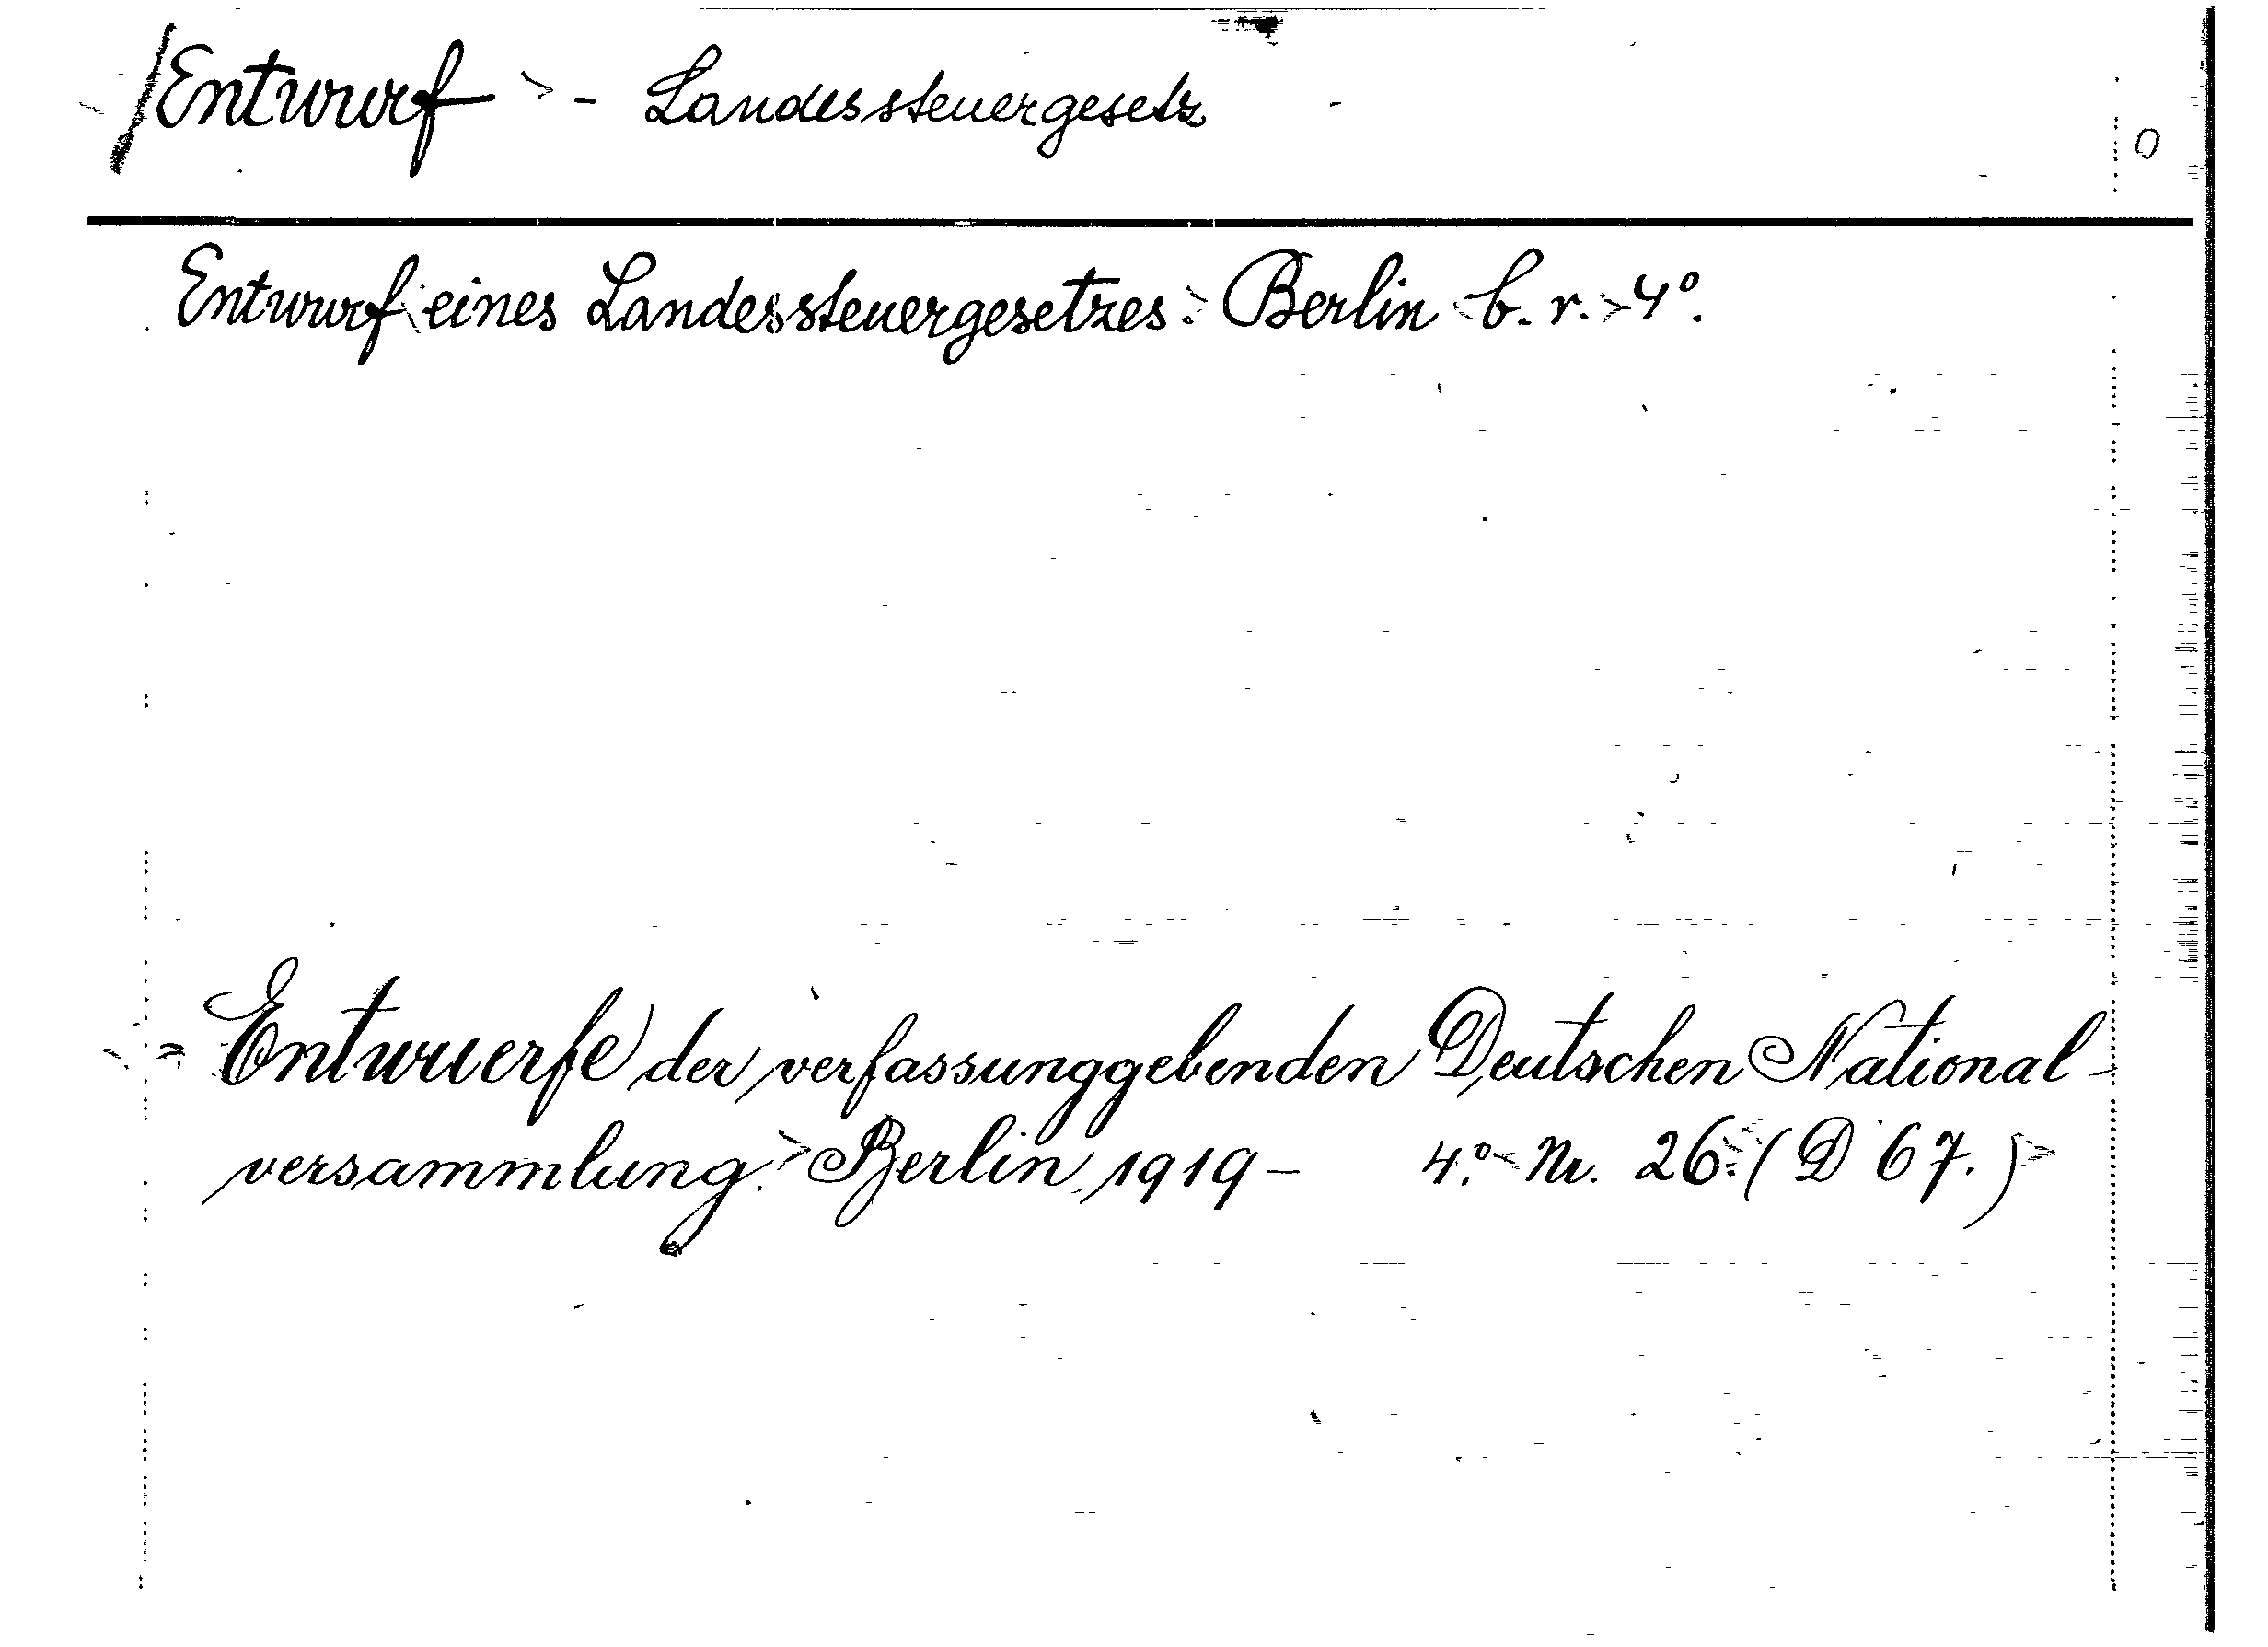 Entwurf - Landessteuergesetz
0
Entwurf eines Landessteuergesetzes. Berlin b. r. 4°.
= Entwuerfe der verfassunggebenden Deutschen National-
versammlung. Berlin, 1919- 4.° Nr. 26. (D 67.)